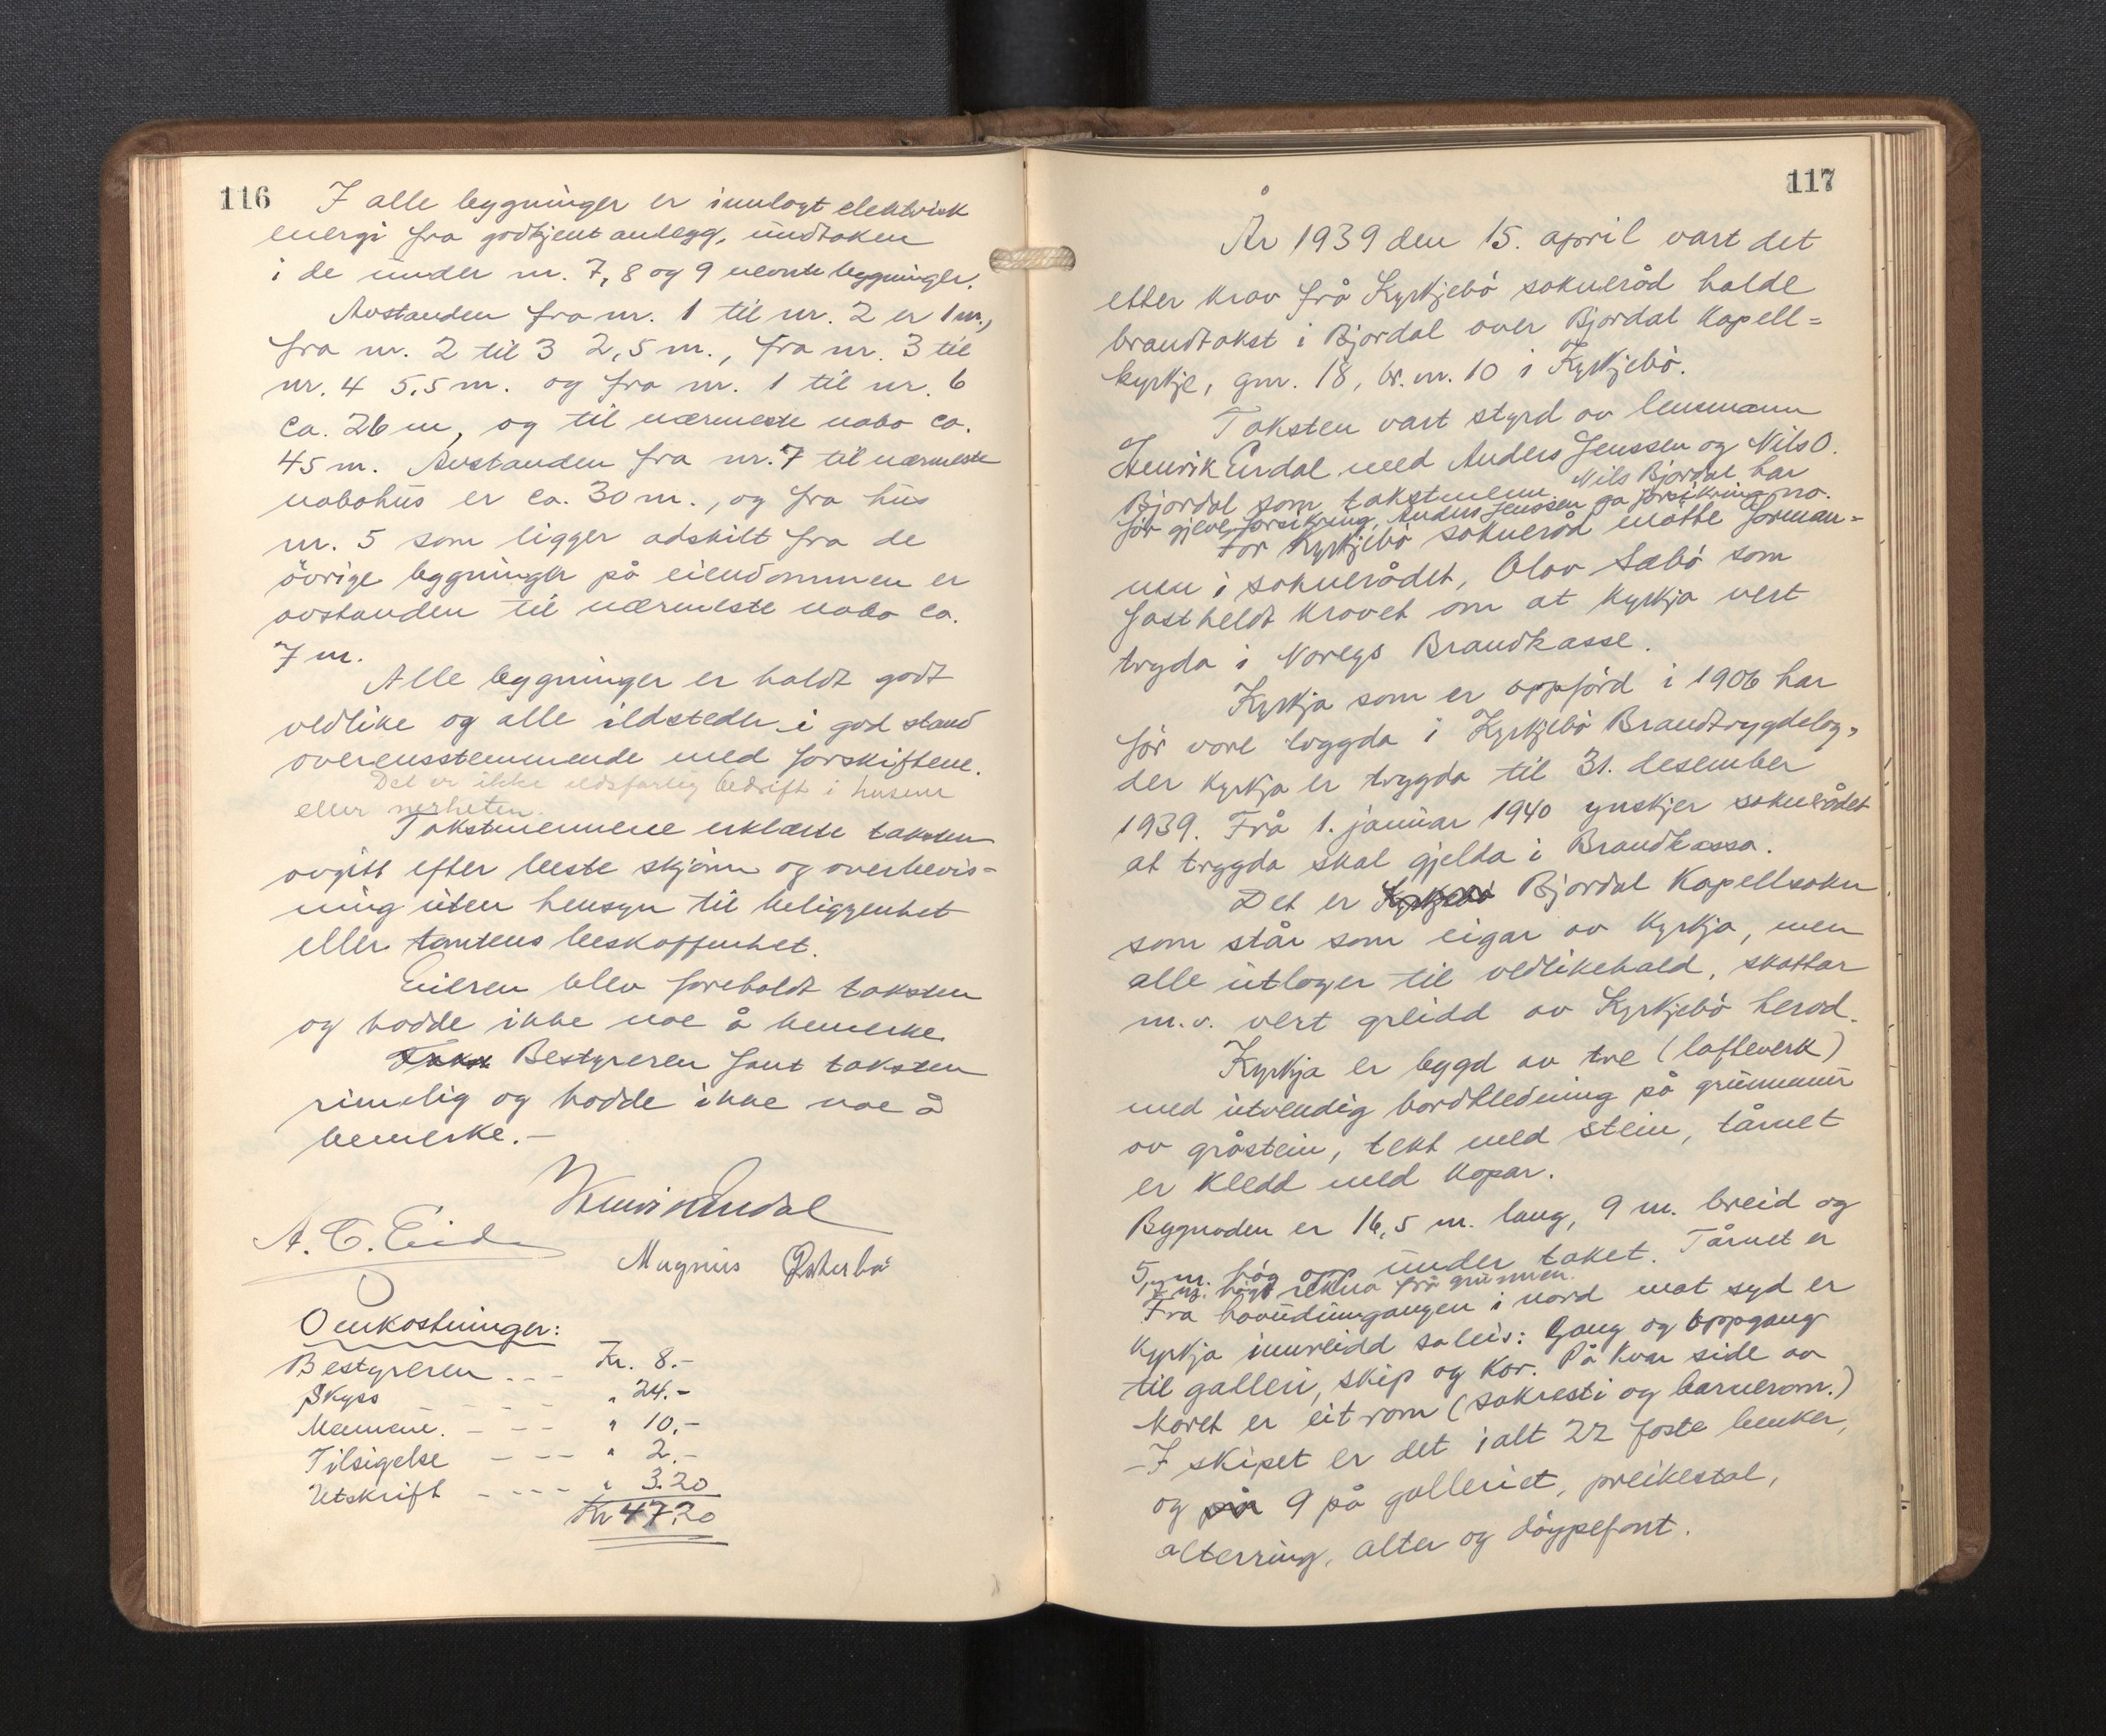 116
I alle bygninger er innlagt elektrisk
energi fra godkjent anlegg, undtaken
i de under nr. 7, 8 og 9 nevnte bygninger.
Avstanden fra nr. 1 til nr. 2 er 1 m.,
fra nr. 2 til 3 2,5 m., fra nr. 3 til
nr. 4 5,5 m. og fra nr. 1 til nr. 6
ca. 26 m, og til nærmeste nabo ca.
45 m. Avstanden fra nr. 7 til nærmeste
nabohus er ca. 30 m., og fra hus
nr. 5 som ligger adskilt fra de
övrige bygninger på eiendommen er
avstanden til nærmeste nabo ca.
7 m.
Alle bygninger er haldt godt
vedlike og alle ildsteder i god stand
overensstemmende med forskiftene.
Det er ikke eldsfarlig bedrift i husene
eller nerheten.
Takstmennene erklærte taksten
avgitt efter beste skjönn og overbevis-
ning uten hensyn til beliggenhet
eller tomtens beskaffenhet.
Eieren blev foreholdt taksten
og hadde ikke noe å bemerke
Takst Bestyreren fant taksten
rimelig og hadde ikke noe å
bemerke.-
Henrik Erdal
A. C. Eide
Magnus Østerbö
Omkostninger:
Bestyreren - - - Kr. 8.-
Skyss - - - " 24.-
Mennene. - - - " 10,-
Tilsigelse - - - " 2.-
Utskrift - - - - " 3.20
Kr 47.20
117
År 1939 den 15. april vart det
etter krav frå Kyrkjebö sokneråd halde
brandtakst i Bjordal over Bjordal Kapell=
kyrkje, gnr. 18, br. nr. 10 i Kyrkjebö.
Taksten vart styrd av lensmann
Henrik Erdal med Anders Jenssen og Nils O.
Bjordal som takstmenn. Nils Bjordal har
för gjeve forsikring, Anders Jenssen ga forsikring no.
For Kyrkjebö sokneråd måtte forman-
nen i soknerådet, Olav Sæbö som
fastheldt kravet om at kyrkja vert
trygda i Noregs Brandkasse.
Kyrkja som er oppförd i 1906 har
för vore tryggda i Kyrkjebö Brandtrygdelag,
der kyrkja er trygda til 31. desember
1939. Frå 1. januar 1940 ynskjer soknerådet
at trygda skal gjelda i Brandkassa.
Det er Kyrkjebö Bjordal Kapellsokn
som står som eigar av kyrkja, men
alle utlager til vedlikehald, skattar
m.v. vert greidd av Kyrkjebö herad.
Kyrkja er bygd av tre (lafteverk)
med utvendig bordkledning på grunnmur
av gråstein, tekt med stein, tårnet
er kledd med kopar.
Bygnaden er 16,5 m. lang, 9 m. breid og
5, m. höy opp under taket. Tårnet er
m. högt rekna frå grunnen.
Fra hovudinngangen i nord mot syd er
kyrkja innreidd soleis: Gang og oppgang
til galleri, skip og kor. På kvar side av
koret er eit rom (sakresti og barnerom.)
-I skipet er det ialt 22 faste benker,
og på 9 på galleriet, preikestol,
alterring, alter og döypefont.